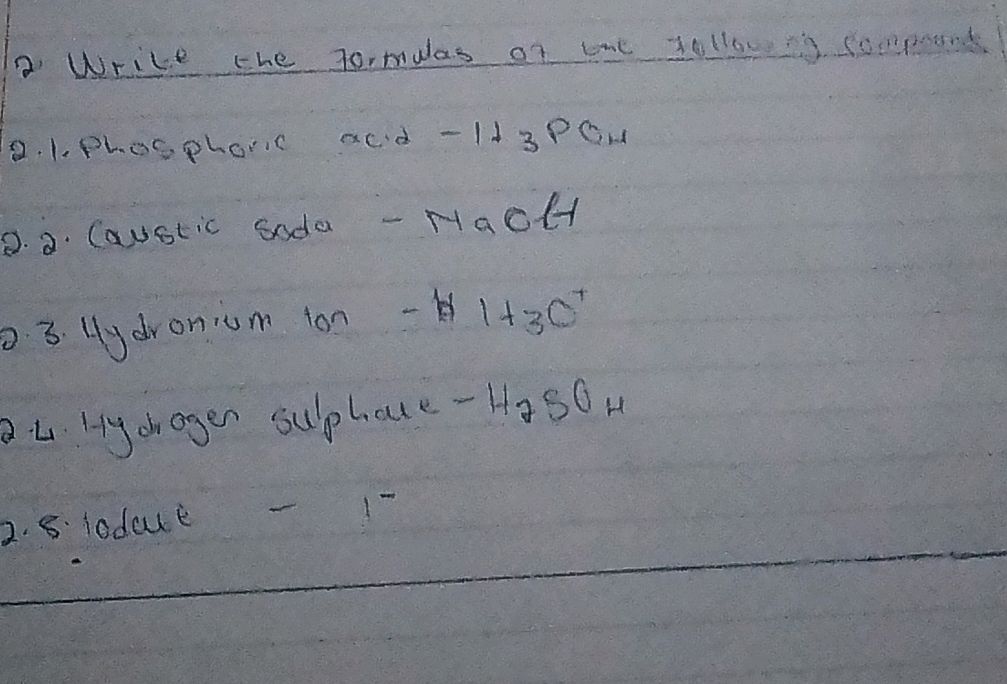 2. Write the formulas of the following compounds
2.1. Phosphoric acid - H3PO4
2.2. Caustic soda - NaOH
2.3. Hydronium ion - H3O+
2.4. Hydrogen sulphate - H2SO4
2.5. iodate - I-